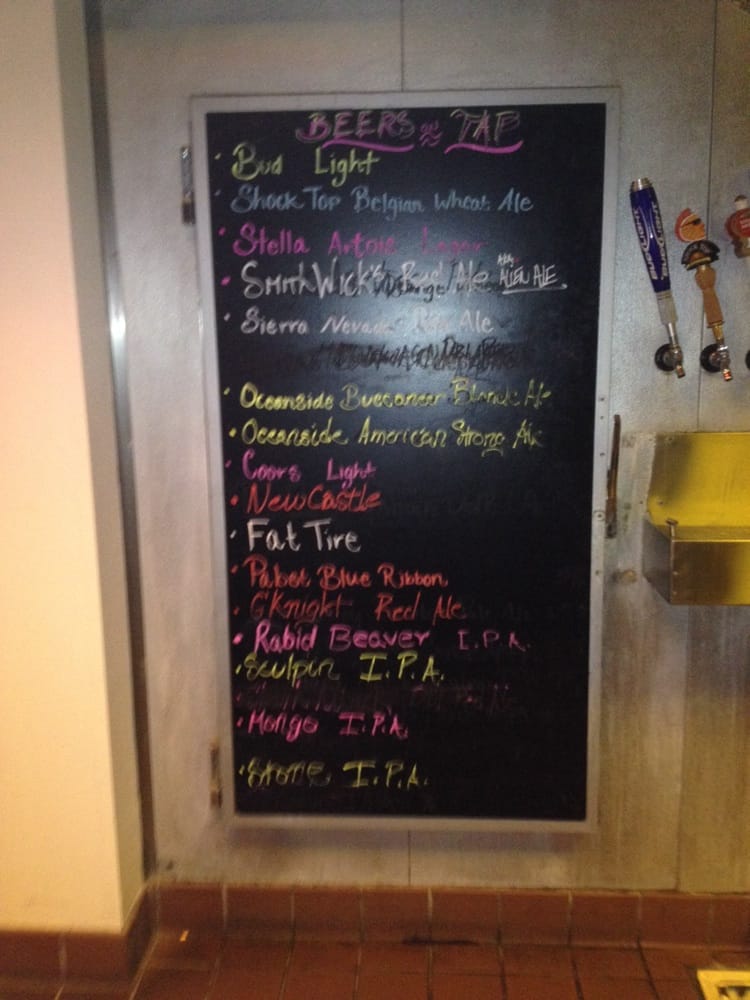 BEERS on TAP
Bud Light
Shock Top Belgian Wheat Ale
Stella Artois Lager
SmithWick's Red Ale AKA ALIEN ALE
Sierra Nevada Pale Ale
Oceanside Buccaneer Blonde Ale
Oceanside American Strong Ale
Coors Light
NewCastle
Fat Tire
Pabst Blue Ribbon
G'Knight Red Ale
Rabid Beaver I.P.A.
Sculpin I.P.A.
Mongo I.P.A.
Stone I.P.A.
BUD LIGHT